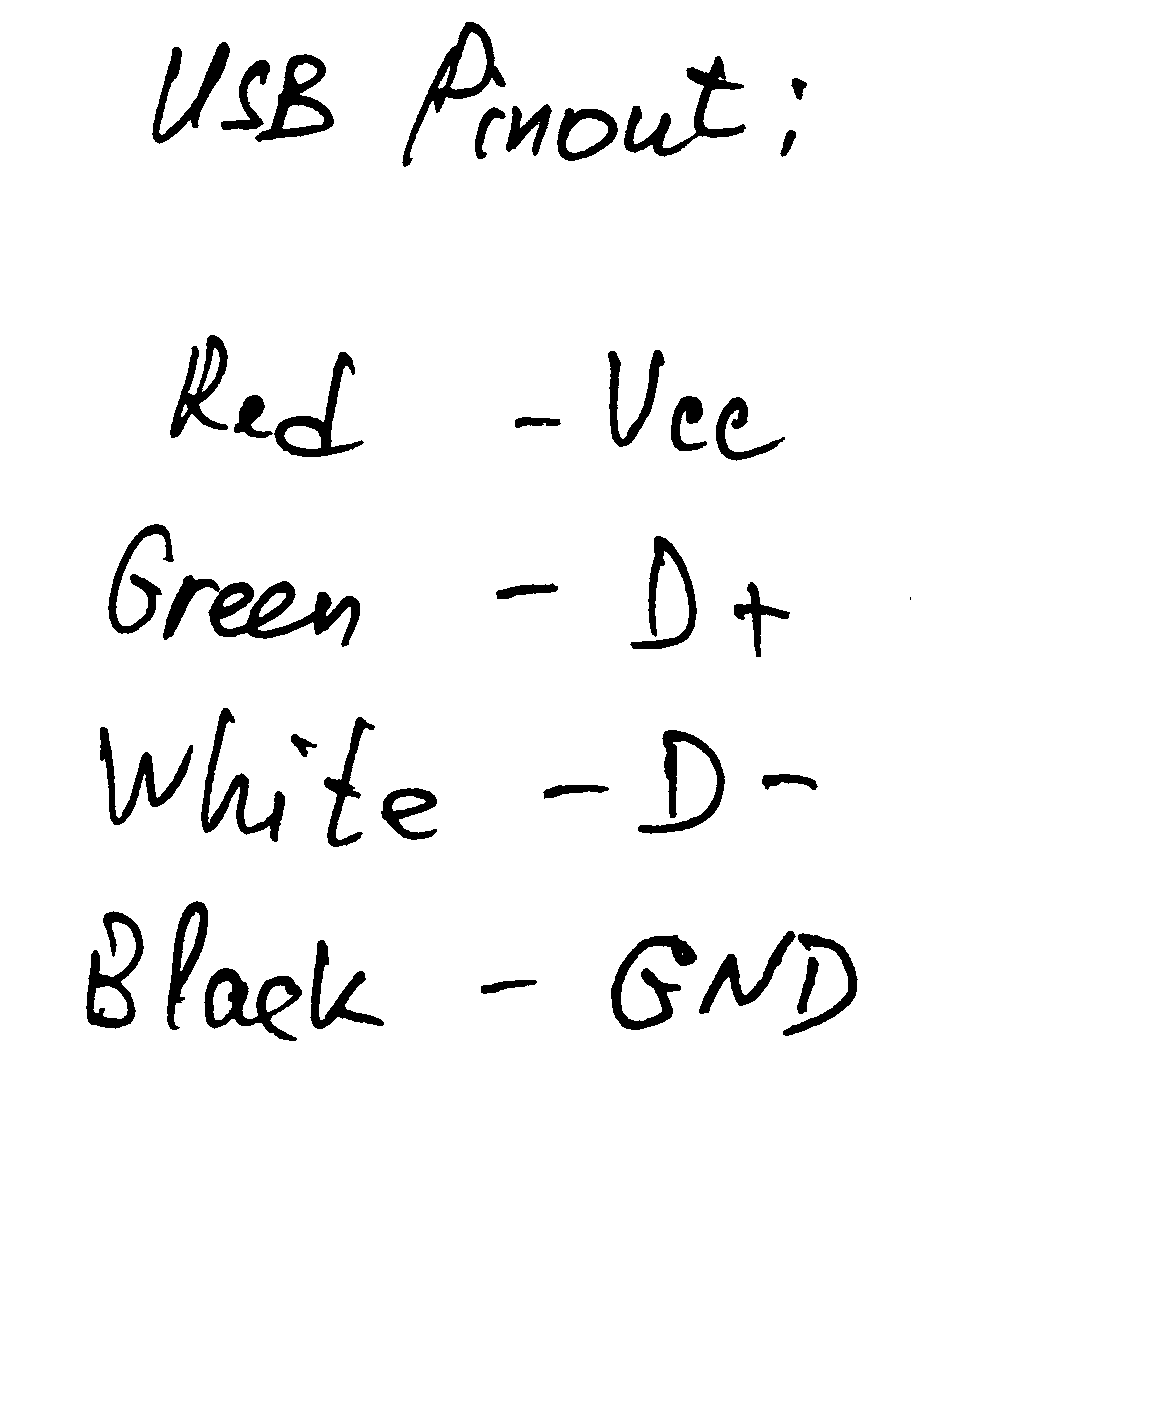 USB Pinout:
Red - Vcc
Green - D+
White - D-
Black - GND